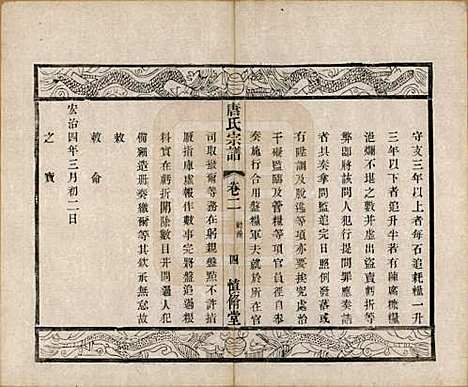 守支三年以上者每石追耗糧一升
三年以下者追升半若有陳腐糠粃
浥爛不堪之數并虛賣虧折等
弊即將該問人犯提問罪應奏請
省具奏拿問監追完日照例發落或
有刑盜及脫逃等項亦要挨究處治
干礙監臨及管糧等項官員徑自參
奏施行合用盤糧軍夫就於所在官
司取撥爾等務在躬親盤點不許指
廒指庫虛報作數事完將盤追過糧
料實在虧折開除數目并開過人犯
備細造冊奏繳爾等其承無怠故
敕
敕命
宏治四年三月初二日
之寶
唐氏宗譜
卷二
四
慎脩堂